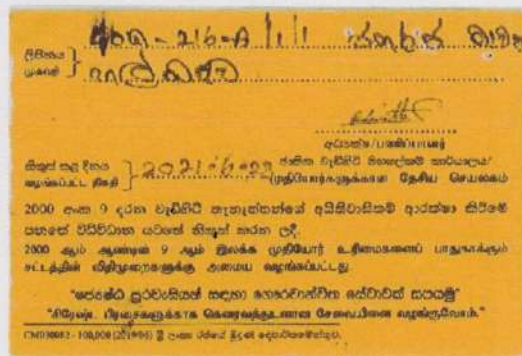 ලිපිනය
முகவரி
අධ්‍යක්ෂ/பணிப்பாளர்
නිකුත් කළ දිනය
வழங்கப்பட்ட திகதி
ජාතික වැඩිහිටි මහලේකම් කාර්යාලය/
(முதியோர்களுக்கான தேசிய செயலகம்
2000 අංක 9 දරන වැඩිහිටි තැනැත්තන්ගේ අයිතිවාසිකම් ආරක්ෂා කිරීමේ
පනතේ විධිවිධාන යටතේ නිකුත් කරන ලදී.
2000 ஆம் ஆண்டின் 9 ஆம் இலக்க முதியோர் உரிமைகளைப் பாதுகாக்கும்
சட்டத்தின் விதிமுறைகளுக்கு அமைய வழங்கப்பட்டது.
"ජ්‍යෙෂ්ඨ පුරවැසියන් සඳහා ගෞරවාන්විත සේවාවක් සපයමු"
"சிரேஷ்ட பிரஜைகளுக்காக கௌரவத்துடனான சேவையினை வழங்குவோம்."
CM030083 - 100,000 (2019/06) ශ්‍රී ලංකා රජයේ මුද්‍රණ දෙපාර්තමේන්තුව.